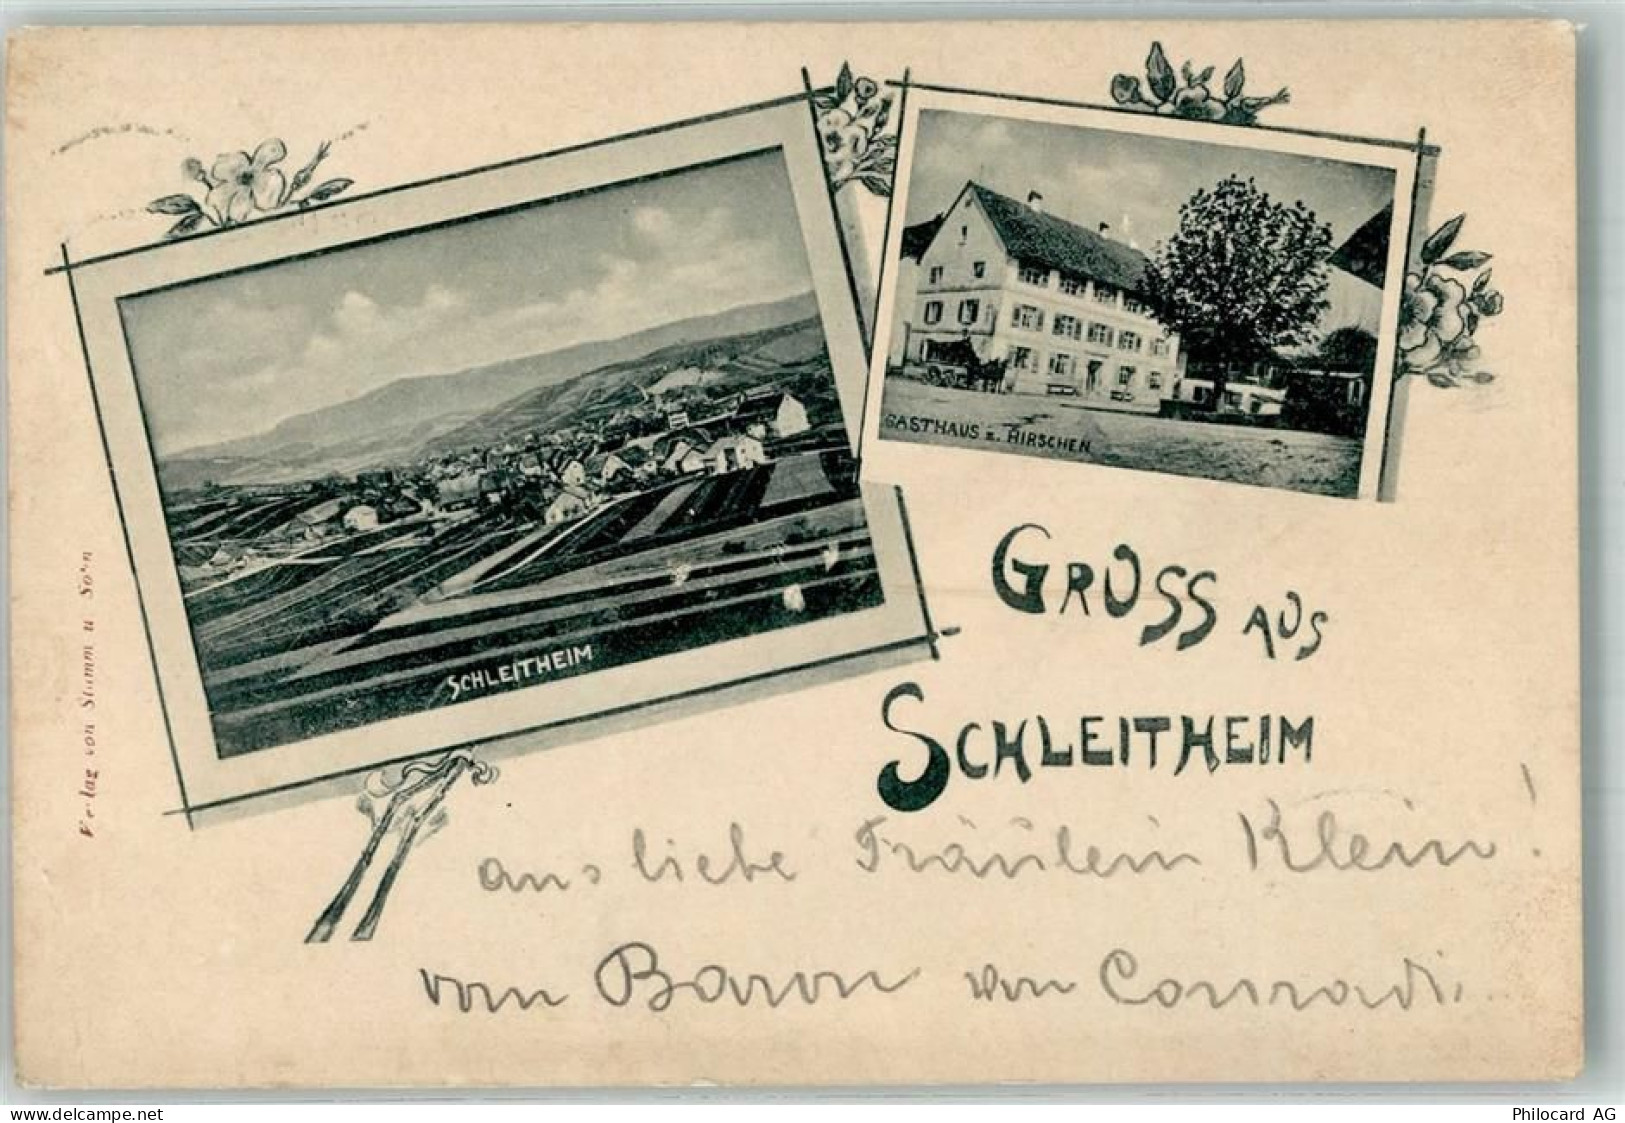 GASTHAUS z. HIRSCHEN
SCHLEITHEIM
GRUSS AUS
SCHLEITHEIM
Verlag von Stamm u Sohn
ans liebe Fräulein Klein!
vom Baron von Conradi.
delcampe.net
Philocard AG